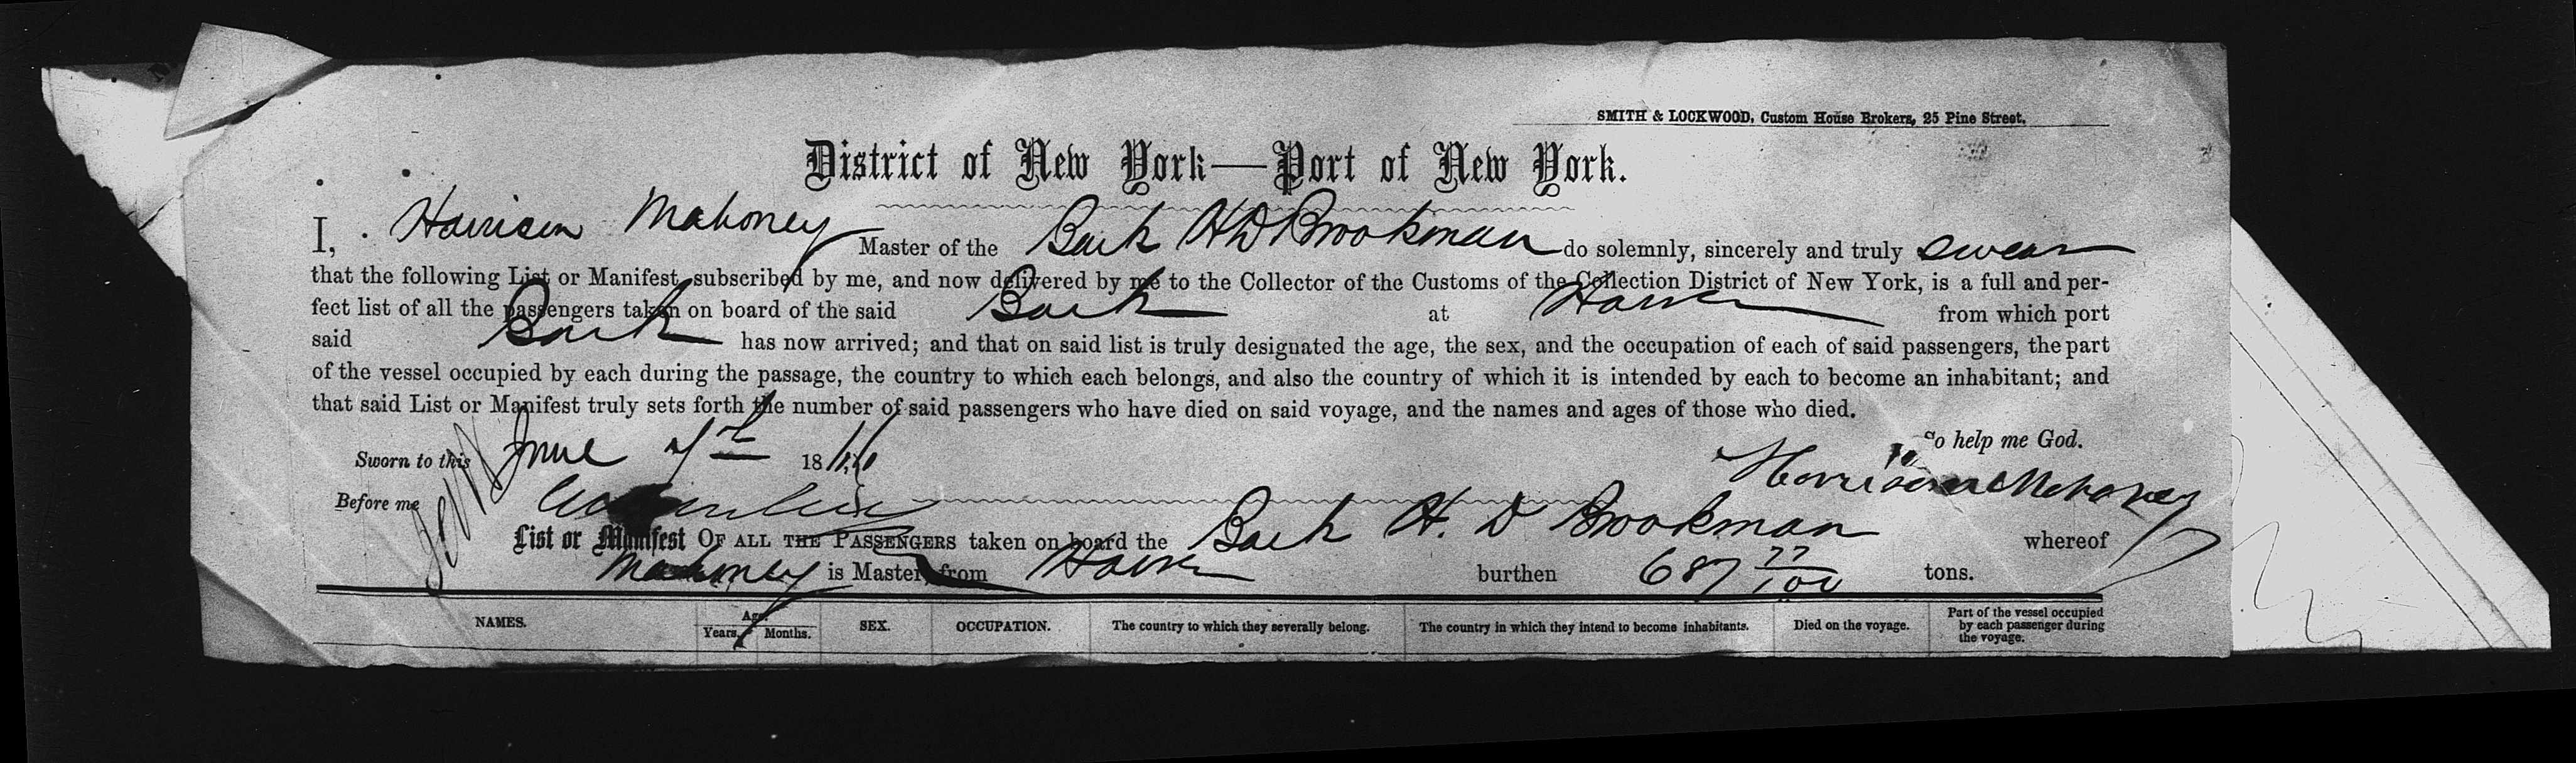 SMITH & LOCKWOOD, Custom House Brokers, 25 Pine Street.
District of New York—Port of New York.
I, Harrison Mahoney Master of the Bark H D Brookman do solemnly, sincerely and truly swear
that the following List or Manifest subscribed by me, and now delivered by me to the Collector of the Customs of the Collection District of New York, is a full and per-
fect list of all the passengers taken on board of the said Bark at Havre from which port
said Bark has now arrived; and that on said list is truly designated the age, the sex, and the occupation of each of said passengers, the part
of the vessel occupied by each during the passage, the country to which each belongs, and also the country of which it is intended by each to become an inhabitant; and
that said List or Manifest truly sets forth the number of said passengers who have died on said voyage, and the names and ages of those who died.
So help me God.
Sworn to this June 7th 1866
Harrison Mahoney
Before me
List or Manifest OF ALL THE PASSENGERS taken on board the Bark H. D Brookman whereof
Mahoney is Master, from Havre burthen 687 77/100 tons.
NAMES. Age. Years. Months. SEX. OCCUPATION. The country to which they severally belong. The country in which they intend to become inhabitants. Died on the voyage. Part of the vessel occupied by each passenger during the voyage.